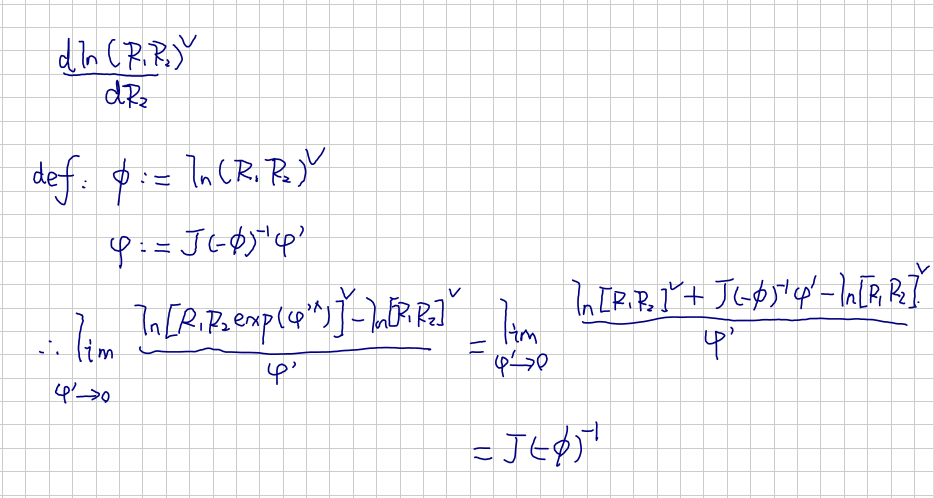 d ln (R₁R₂)^∨ / dR₂
def: ϕ := ln(R₁R₂)^∨
φ := J(-ϕ)⁻¹φ'
∴ lim_{φ'→0} (ln[R₁R₂exp(φ'^∧)]^∨ - ln[R₁R₂]^∨) / φ' = lim_{φ'→0} (ln[R₁R₂]^∨ + J(-ϕ)⁻¹φ' - ln[R₁R₂]^∨) / φ'
= J(-ϕ)⁻¹